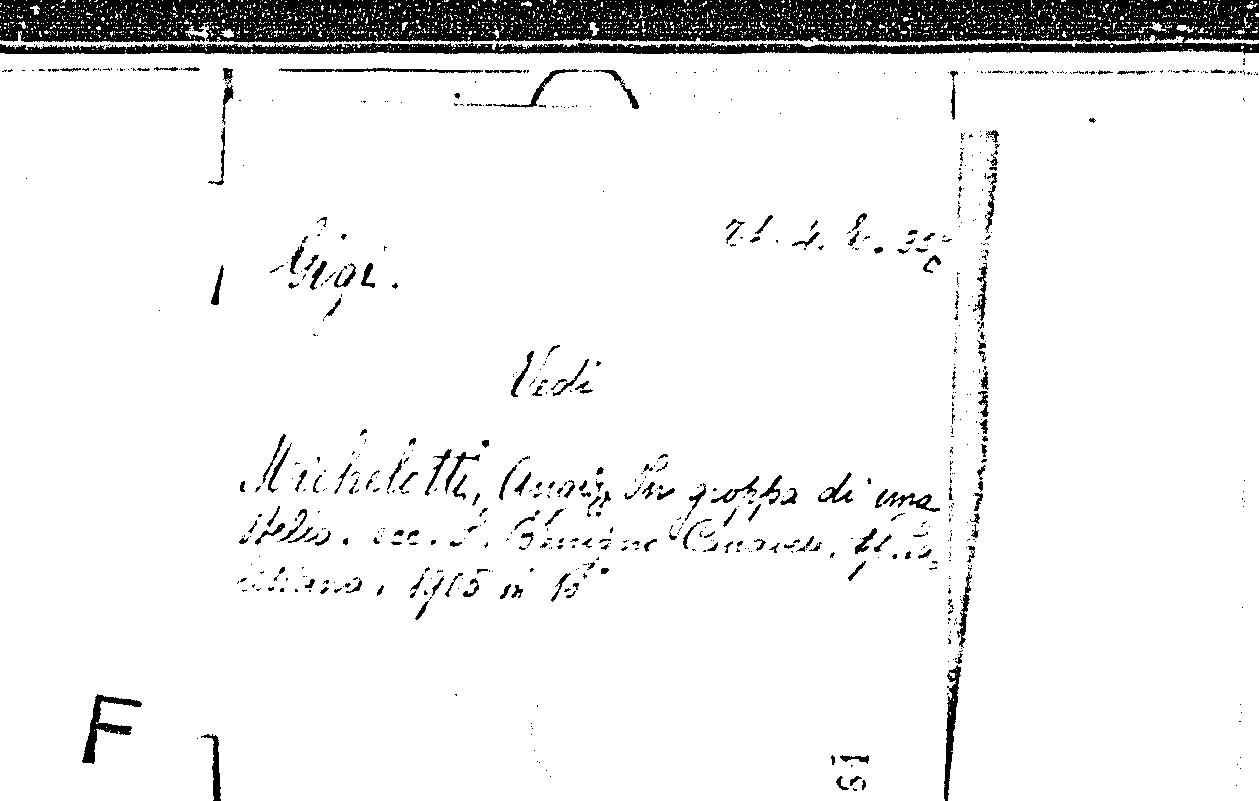 Gigi.
21. 4. E. 33
Vedi
Micheletti, Luigi, In groppa di una
stella. ecc. S. Benigno Canavese. tip. Sa-
lesiana. 1905 in 16°
F